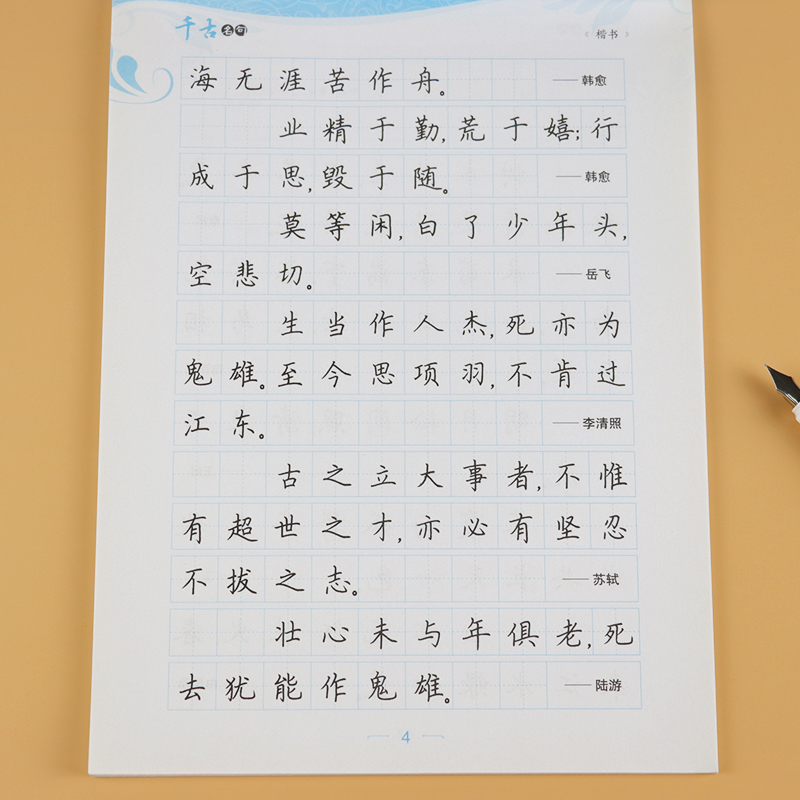 千古名句
楷书
海无涯苦作舟。 ——韩愈
业精于勤,荒于嬉;行
成于思,毁于随。 ——韩愈
莫等闲,白了少年头,
空悲切。 ——岳飞
生当作人杰,死亦为
鬼雄。至今思项羽,不肯过
江东。 ——李清照
古之立大事者,不惟
有超世之才,亦必有坚忍
不拔之志。 ——苏轼
壮心未与年俱老,死
去犹能作鬼雄。 ——陆游
4